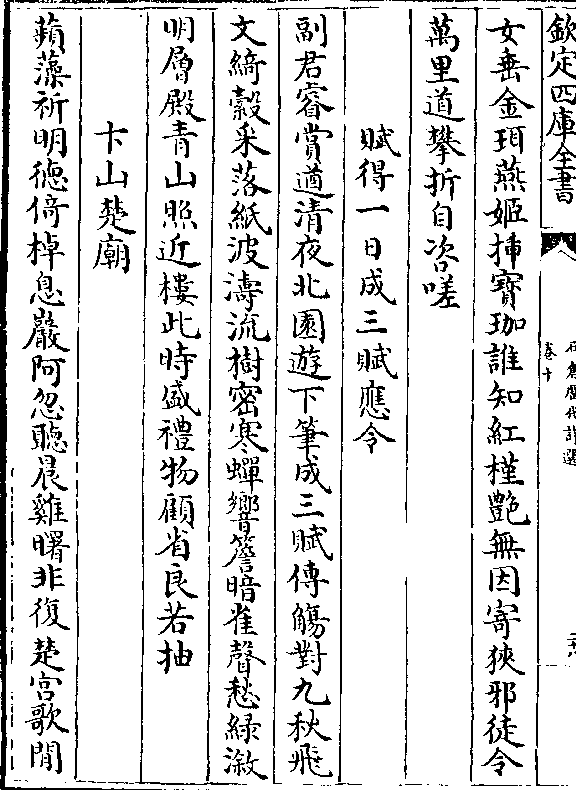 欽定四庫全書
石倉歷代詩選
卷十
女垂金珥燕姬揷寶珈誰知紅槿艶無因寄狹邪徒令
萬里道攀折自咨嗟
賦得一日成三賦應令
副君睿賞遒清夜北園遊下筆成三賦傳觴對九秋飛
文綺縠采落紙波濤流樹密寒蟬響簷暗雀聲愁緑潊
明層殿青山照近樓此時盛禮物顧省良若抽
卞山楚廟
蘋藻祈明德倚棹息巖阿忽聽晨雞曙非復楚宫歌閒